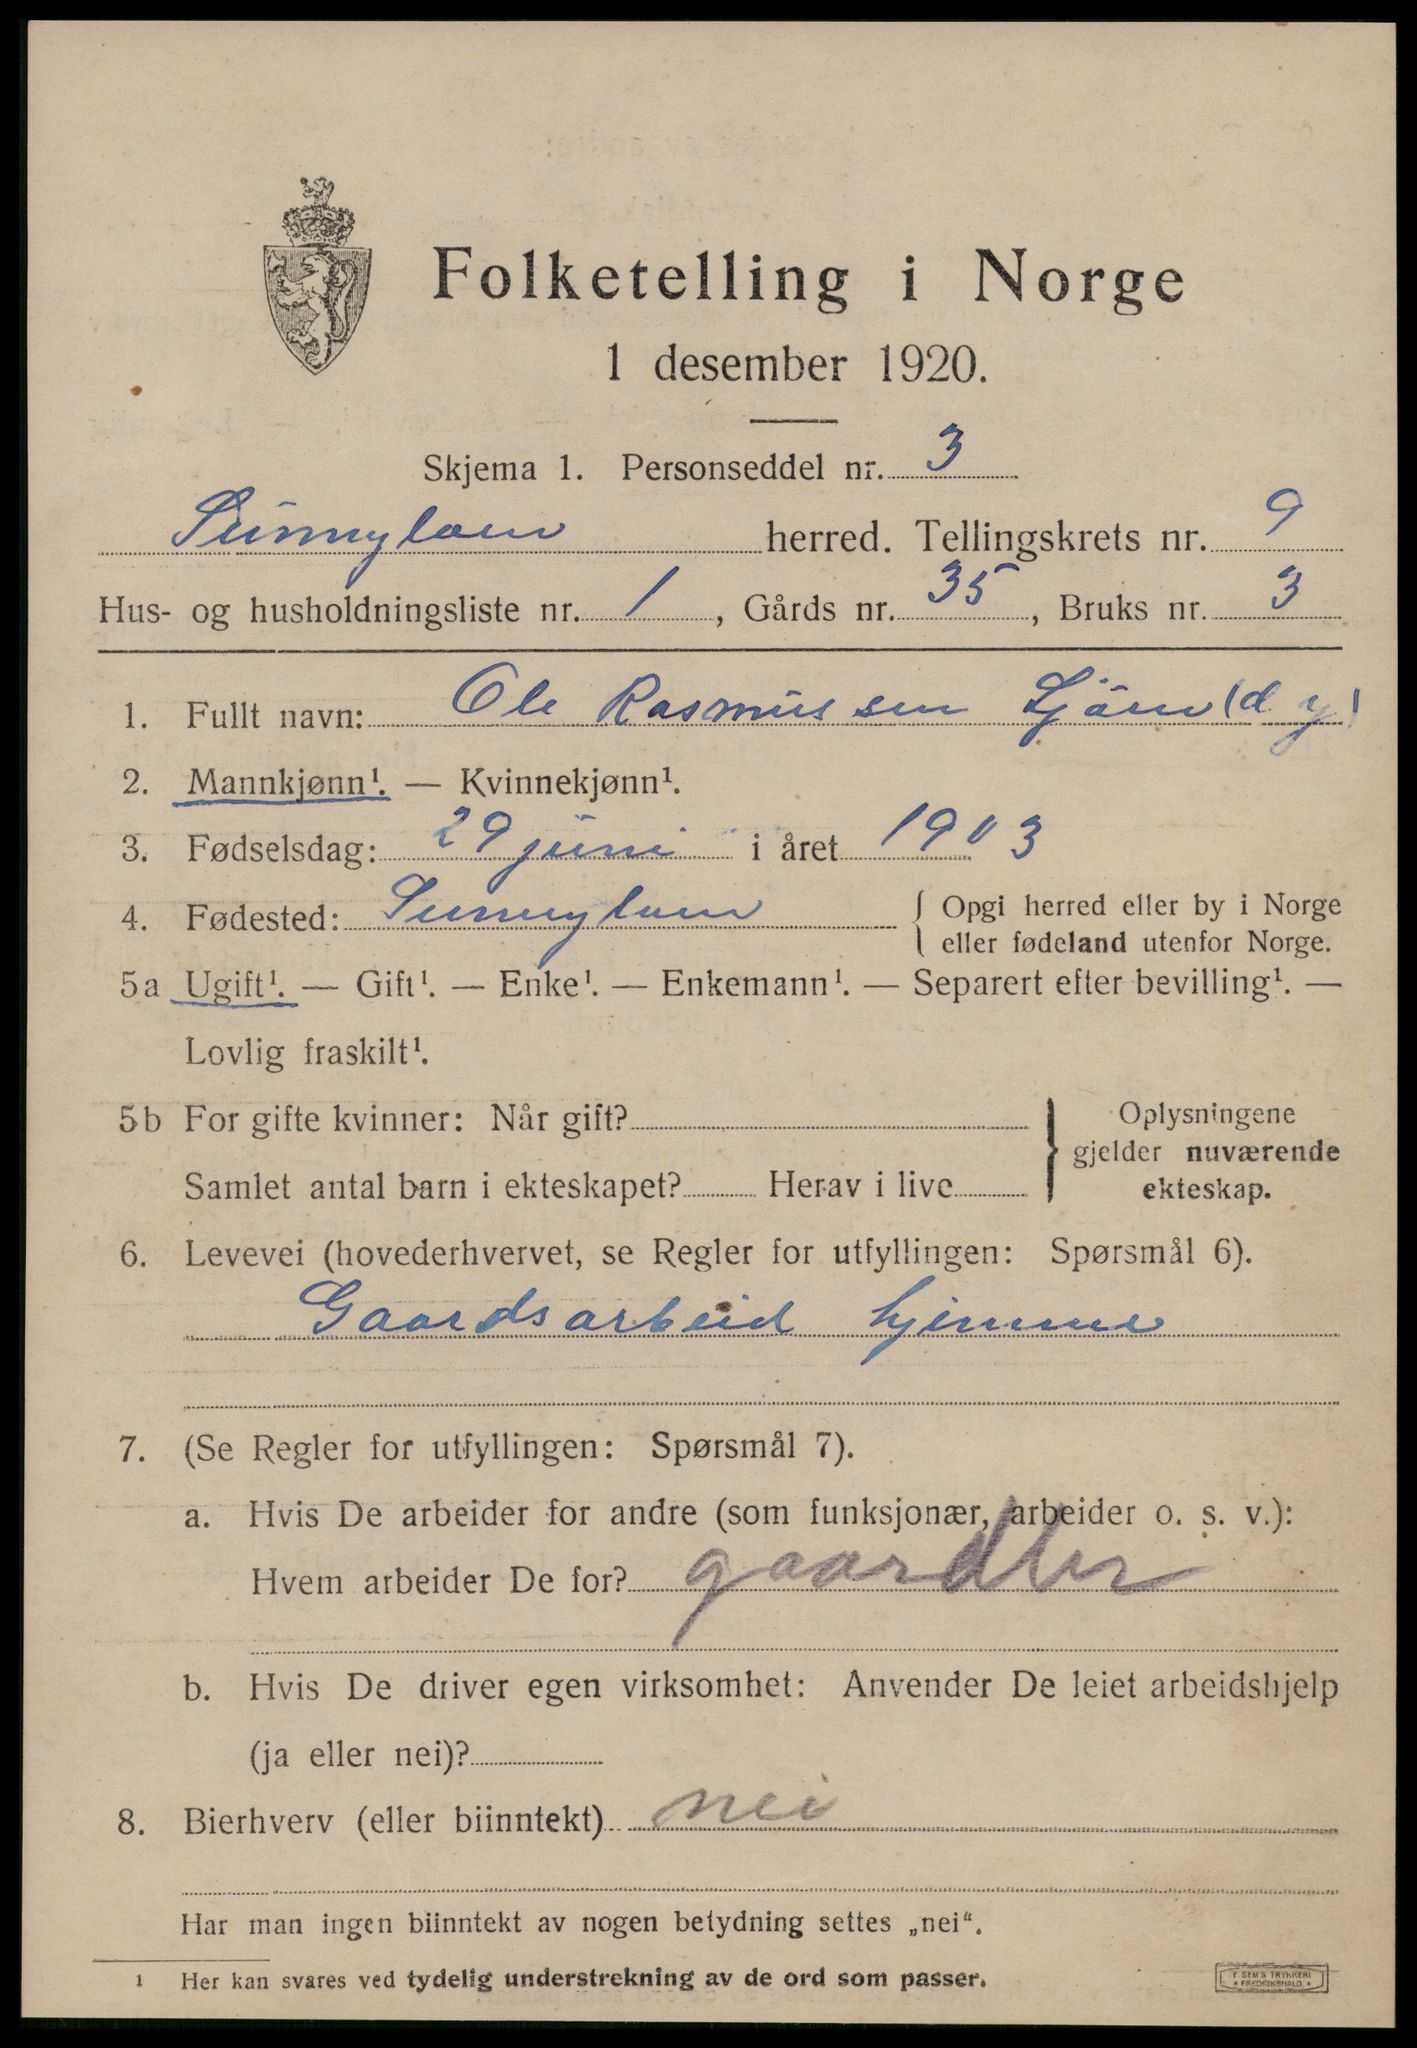 Folketelling i Norge
1 desember 1920.
Skjema 1. Personseddel nr. 3
Sunnylven herred. Tellingskrets nr. 9
Hus- og husholdningsliste nr. 1, Gårds nr. 35, Bruks nr. 3
1. Fullt navn: Ole Rasmussen (d y)
2. Mannkjønn¹. — Kvinnekjønn¹.
3. Fødselsdag: 29 juni i året 1903
4. Fødested: Sunnylven { Opgi herred eller by i Norge
eller fødeland utenfor Norge.
5a Ugift¹. — Gift¹. — Enke¹. — Enkemann¹. — Separert efter bevilling¹. —
Lovlig fraskilt¹.
5b For gifte kvinner: Når gift? } Oplysningene
gjelder nuværende
Samlet antal barn i ekteskapet? Herav i live ekteskap.
6. Levevei (hovederhvervet, se Regler for utfyllingen: Spørsmål 6).
Gaardsarbeid hjemme
7. (Se Regler for utfyllingen: Spørsmål 7).
a. Hvis De arbeider for andre (som funksjonær, arbeider o. s. v.):
Hvem arbeider De for?
b. Hvis De driver egen virksomhet: Anvender De leiet arbeidshjelp
(ja eller nei)?
8. Bierhverv (eller biinntekt) nei
Har man ingen biinntekt av nogen betydning settes „nei“.
1 Her kan svares ved tydelig understrekning av de ord som passer.
T. SEM'S TRYKKERI
FREDRIKSHALD.